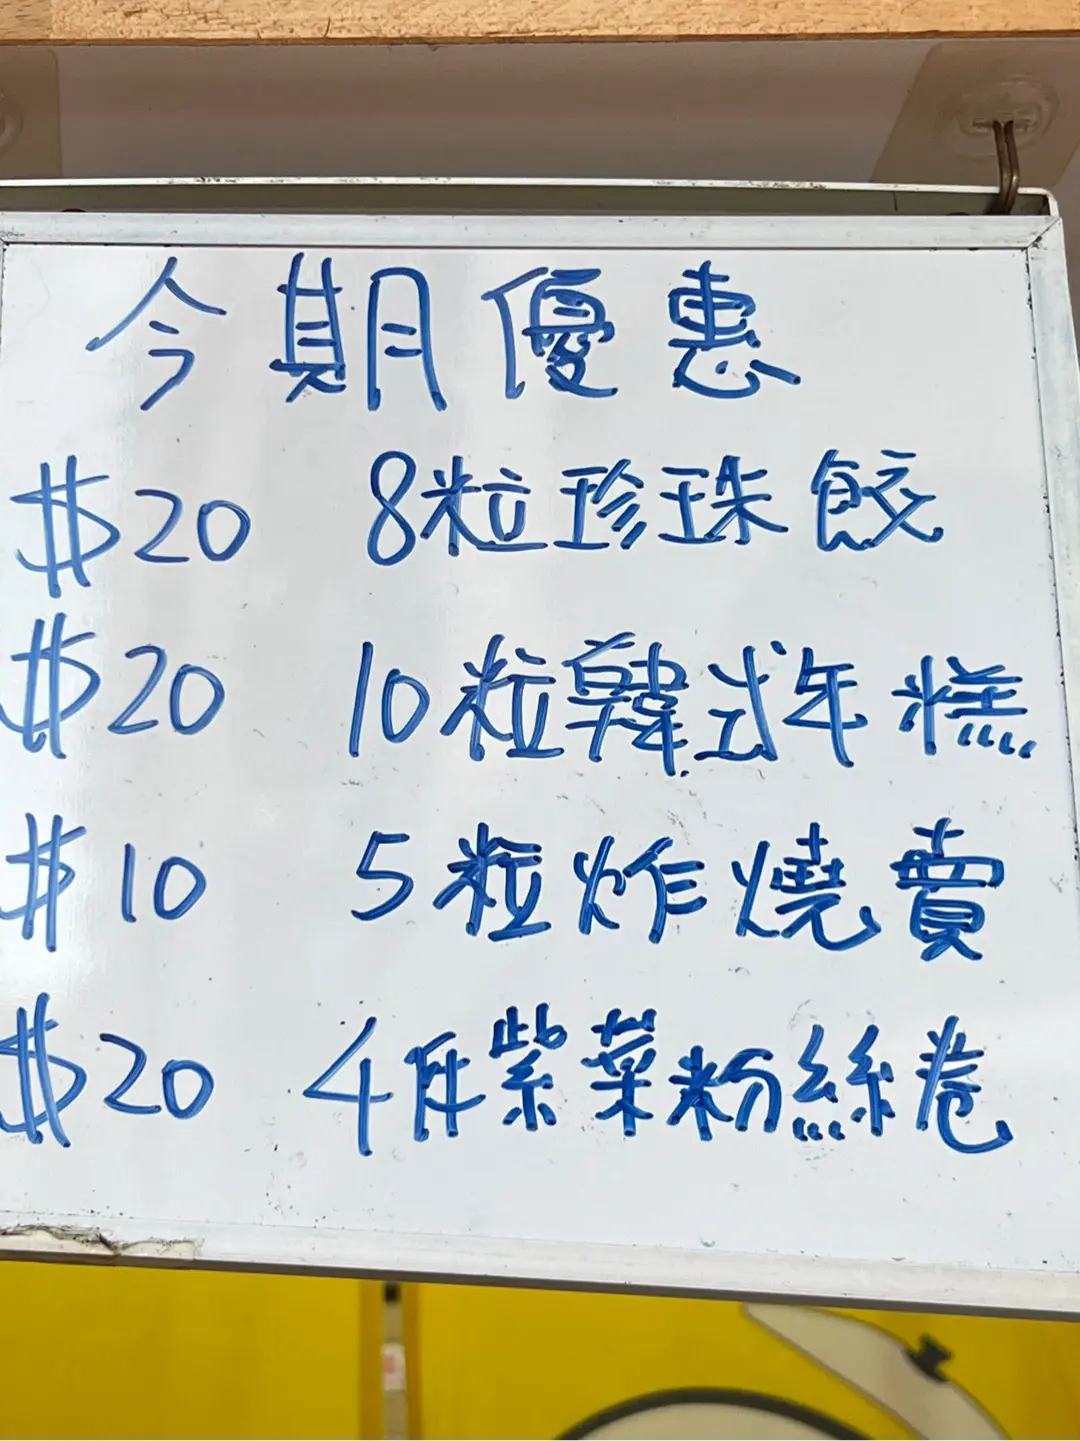 今期優惠
$20 8粒珍珠餃
$20 10粒韓式年糕
$10 5粒炸燒賣
$20 4件紫菜粉絲卷